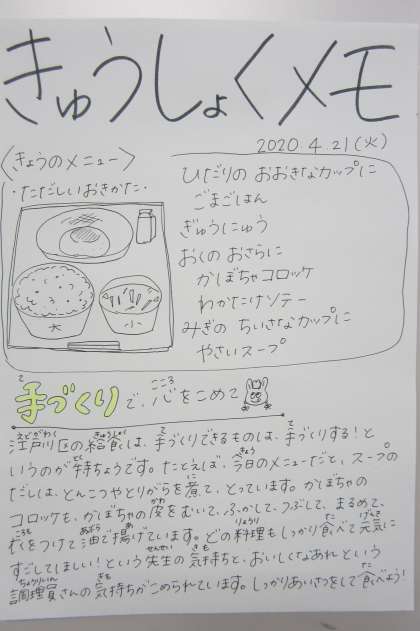 きゅうしょくメモ
2020.4.21(火)
〈きょうのメニュー〉
・ただしいおきかた・
大
小
ひだりの おおきなカップに
ごまごはん
ぎゅうにゅう
おくの おさらに
かぼちゃコロッケ
わかたけソテー
みぎの ちいさなカップに
やさいスープ
手づくりで、心をこめて
江戸川区の給食は、手づくりできるものは、手づくりする！と
いうのが特ちょうです。たとえば、今日のメニューだと、スープの
だしは、とんこつやとりがらを煮て、とっています。かぼちゃの
コロッケも、かぼちゃの皮をむいて、ふかして、つぶして、まるめて、
衣をつけて油で揚げています。どの料理もしっかり食べて元気に
すごしてほしい！という先生の気持ちと、おいしくなあれという
調理員さんの気持ちがこめられています。しっかりあいさつをして食べよう！